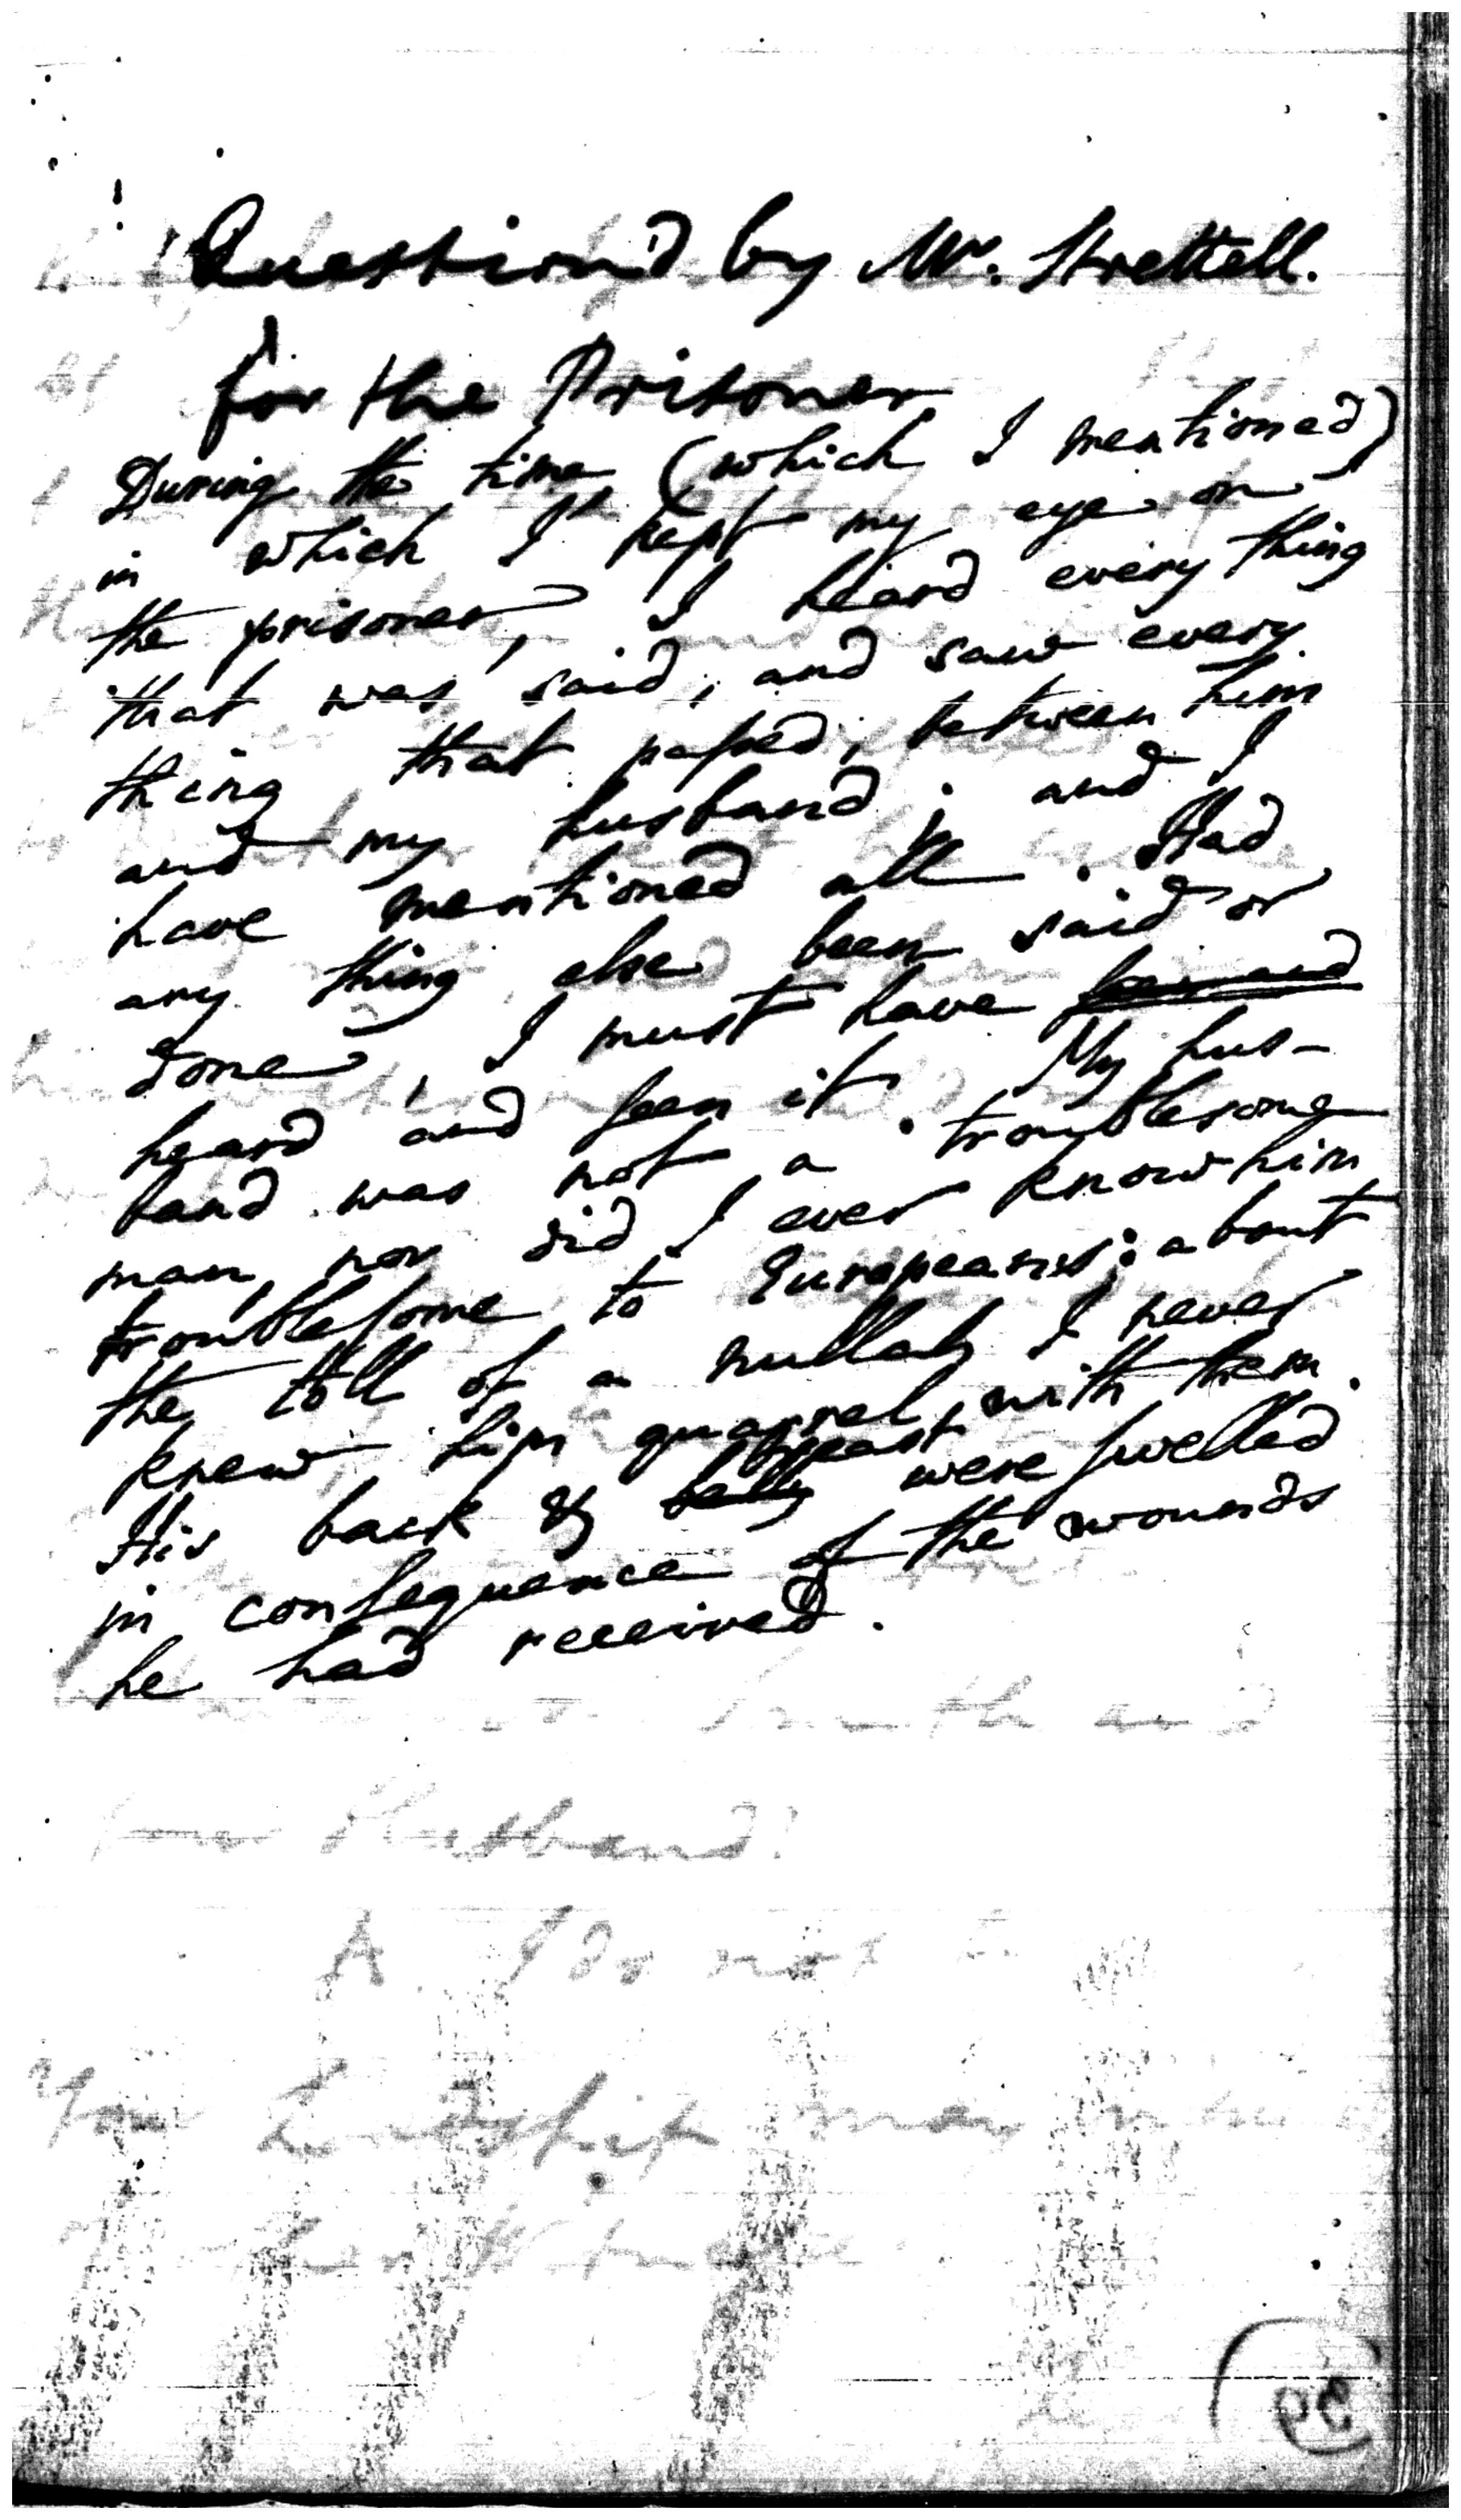 Question'd by Mr. Strettell.
for the Prisoner
During the time (which I mentioned)
in which I kept my eye on
the prisoner, I heard every thing
that was said, and saw every
thing that passed, between him
and my husband; and I
have mentioned all. Had
any thing else been said or
done, I must have
heard and seen it. My hus-
band was not a troublesome
man, nor did I ever know him
troublesome to Europeans: about
the toll of a nullah I never
knew him quarrel with them.
His back & belly breast were swelled
in consequence of the wounds
he had received.